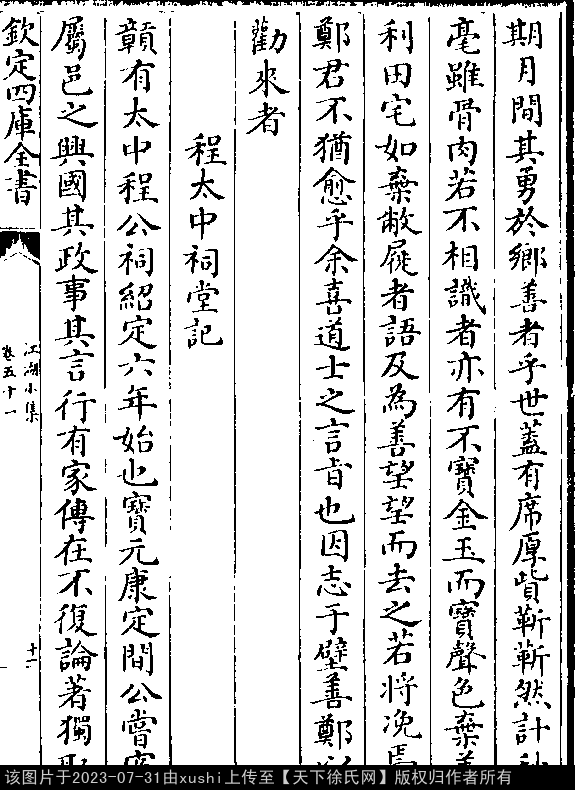 期月間其勇於鄉善者乎世蓋有席厚貲靳靳然計秋
毫雖骨肉若不相識者亦有不寳金玉而寳聲色棄美
利田宅如棄敝屣者語及為善望望而去之若將凂焉
鄭君不猶愈乎余喜道士之言旨也因志于壁善鄭以
勸來者
程太中祠堂記
贛有太中程公祠紹定六年始也寳元康定間公嘗
屬邑之興國其政事其言行有家傳在不復論著獨
欽定四庫全書
江湖小集
卷五十一
十一
该图片于2023-07-31由xushi上传至【天下徐氏网】版权归作者所有